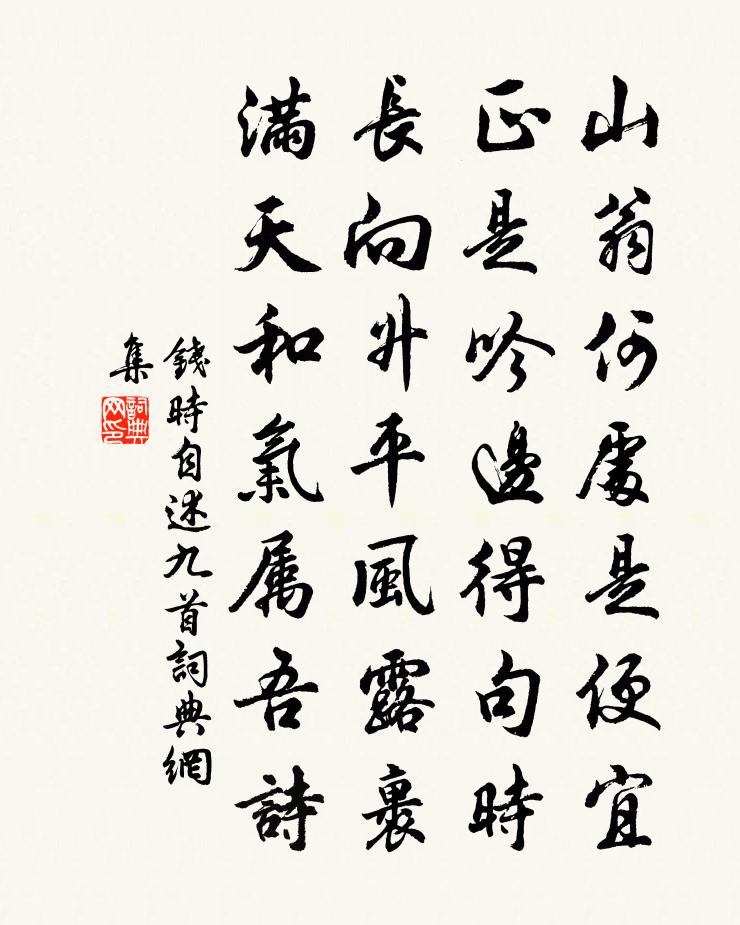 山翁何處是便宜
正是吟邊得句時
長向升平風露裏
滿天和氣属吾詩
錢時自述九首詞典網
集
詞典
网印